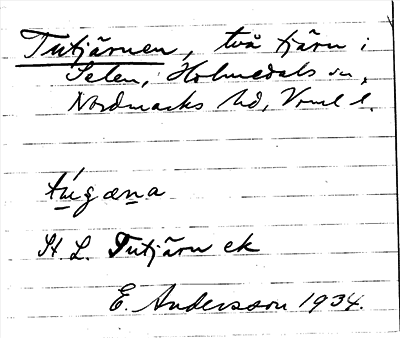 Tutjärnen, två tjärn i
Selen, Holmedals sn,
Nordmarks hd, Vrml l.
tu̍gæna
St L. Tutjärn ek
E. Andersson 1934.